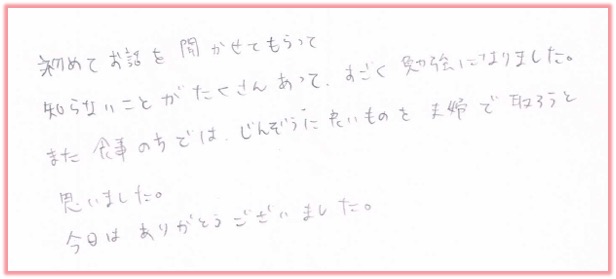 初めてお話を聞かせてもらって
知らないことがたくさんあって、すごく勉強になりました。
また食事の方では、じんぞうに良いものを夫婦で取ろうと
思いました。
今日はありがとうございました。